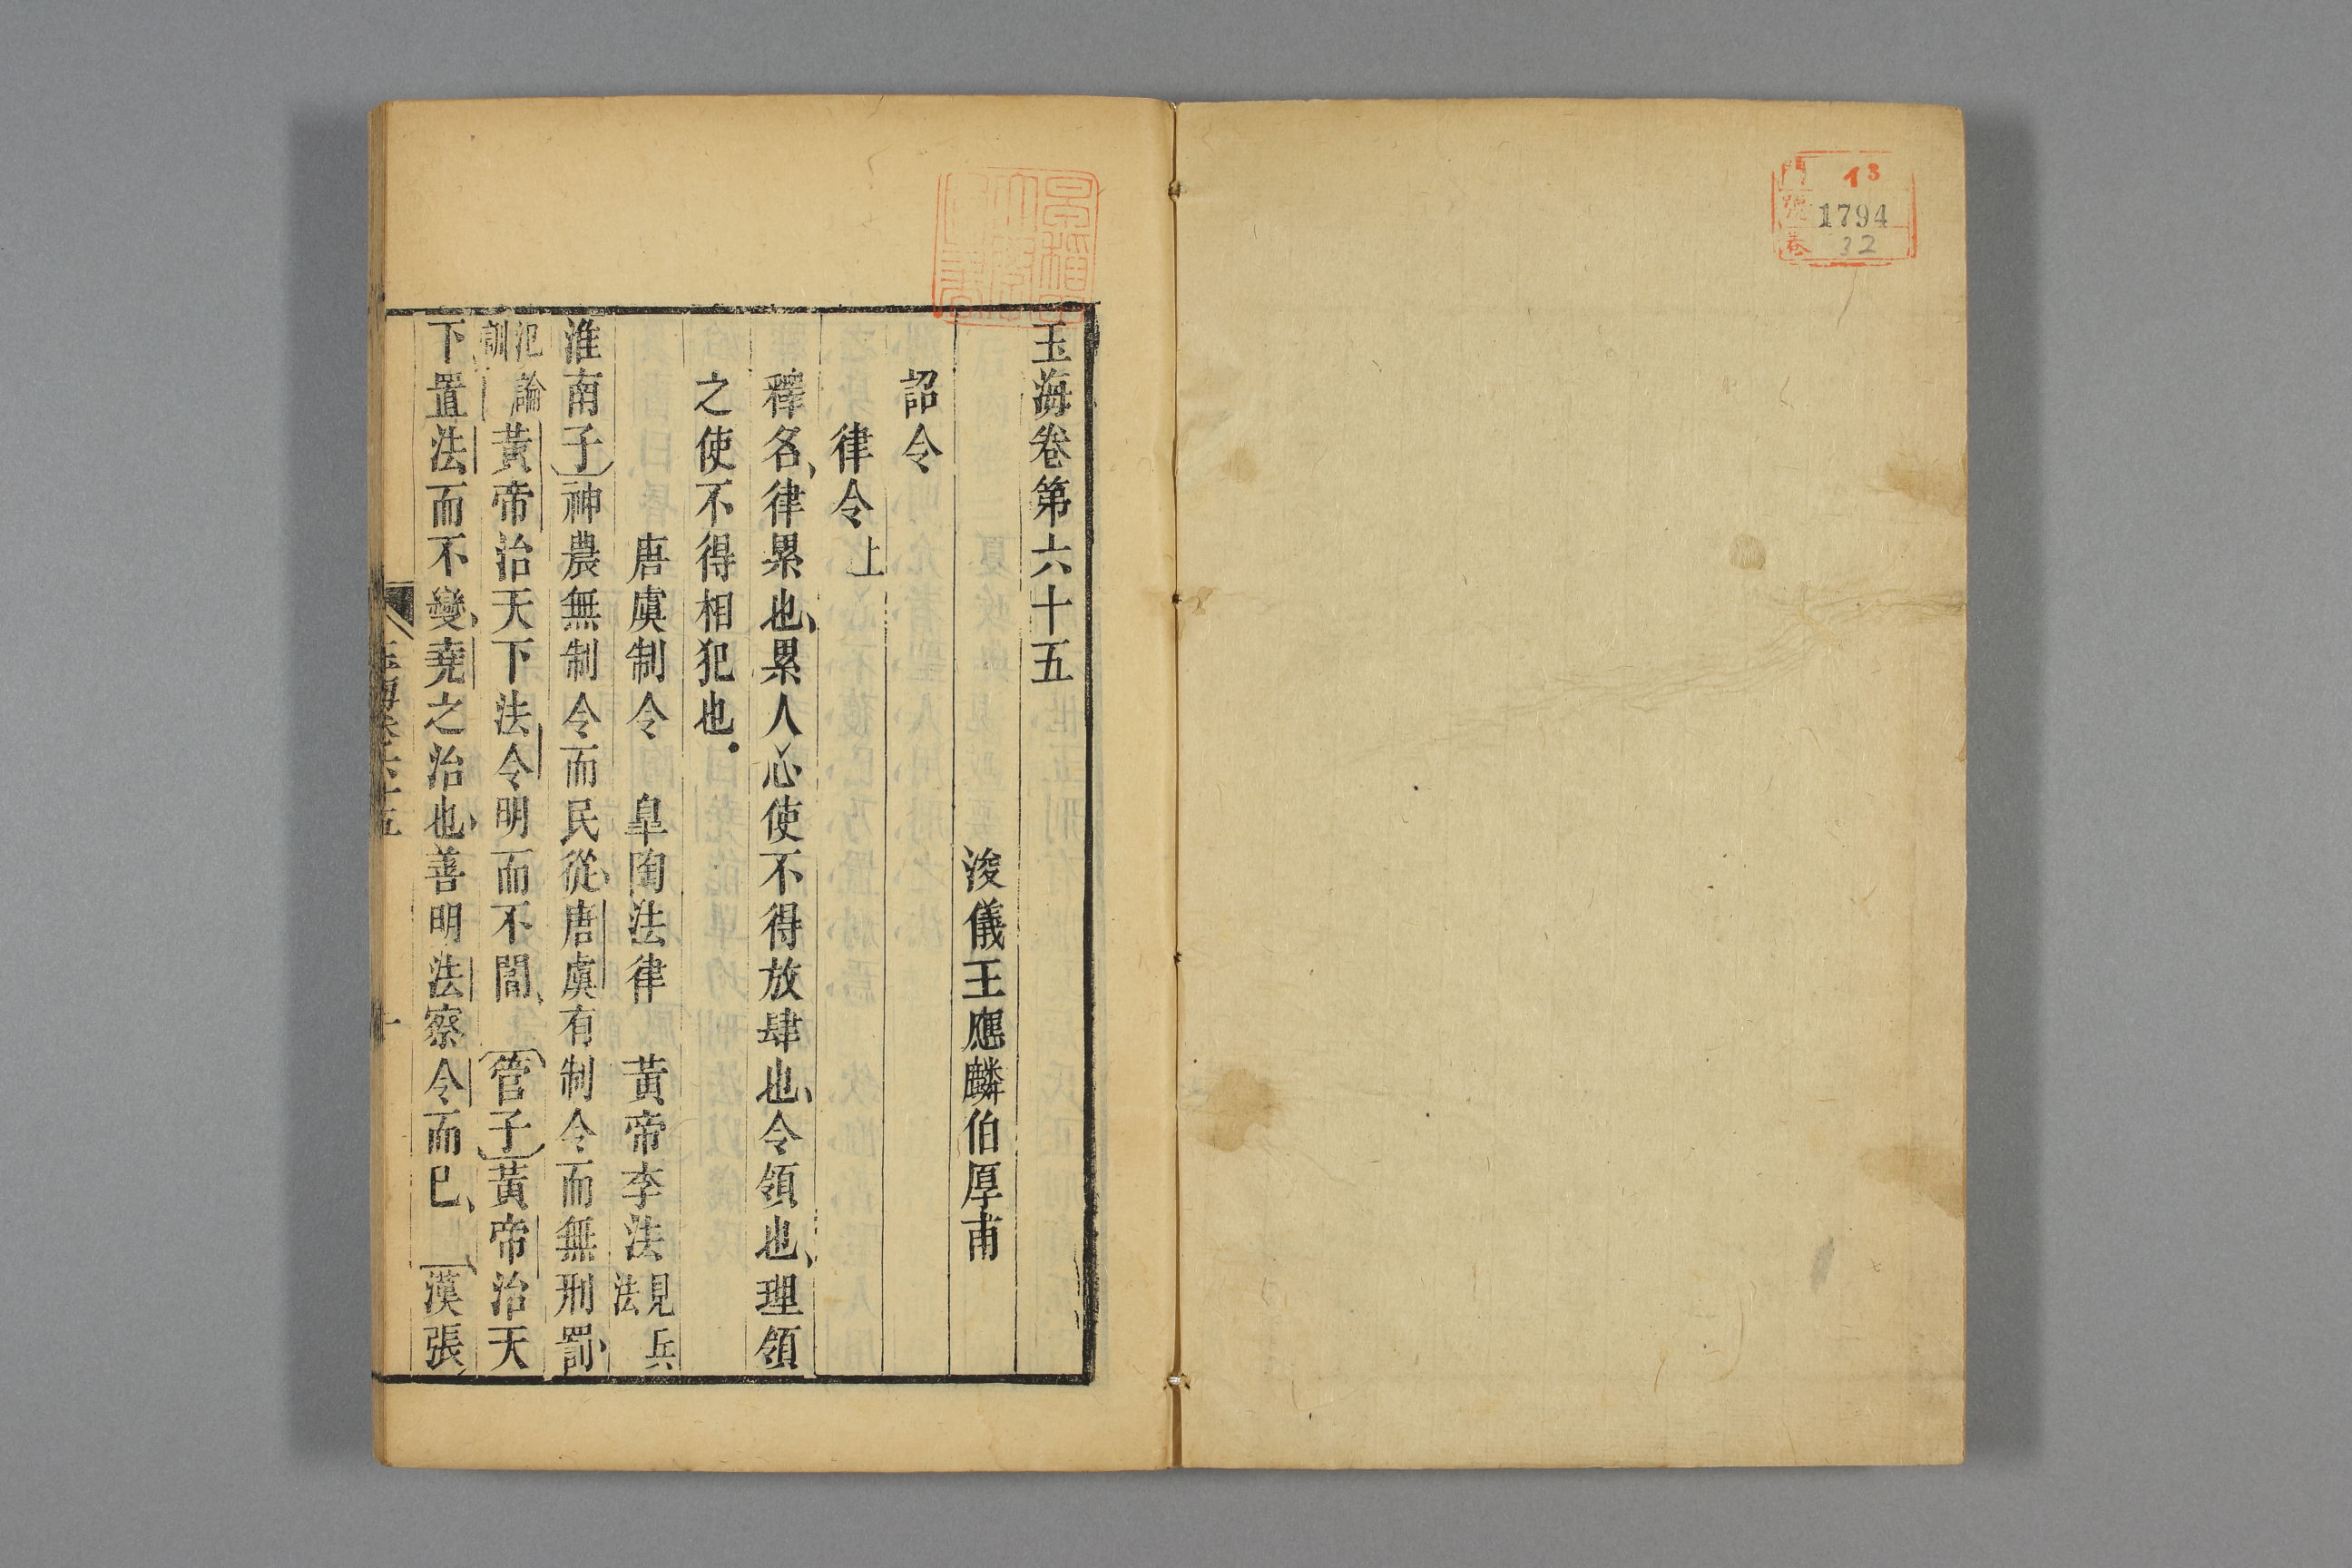 門 13
號 1794
卷 32
玉海卷第六十五
浚儀王應麟伯厚甫
詔令
律令上
釋名律累也累人心使不得放肆也令領也理領
之使不得相犯也
唐虞制令 皐陶法律 黃帝李法見兵法
淮南子神農無制令而民從唐虞有制令而無刑罰
氾論訓黃帝治天下法令明而不闇 管子黃帝治天
下置法而不變堯之治也善明法察令而已 漢張